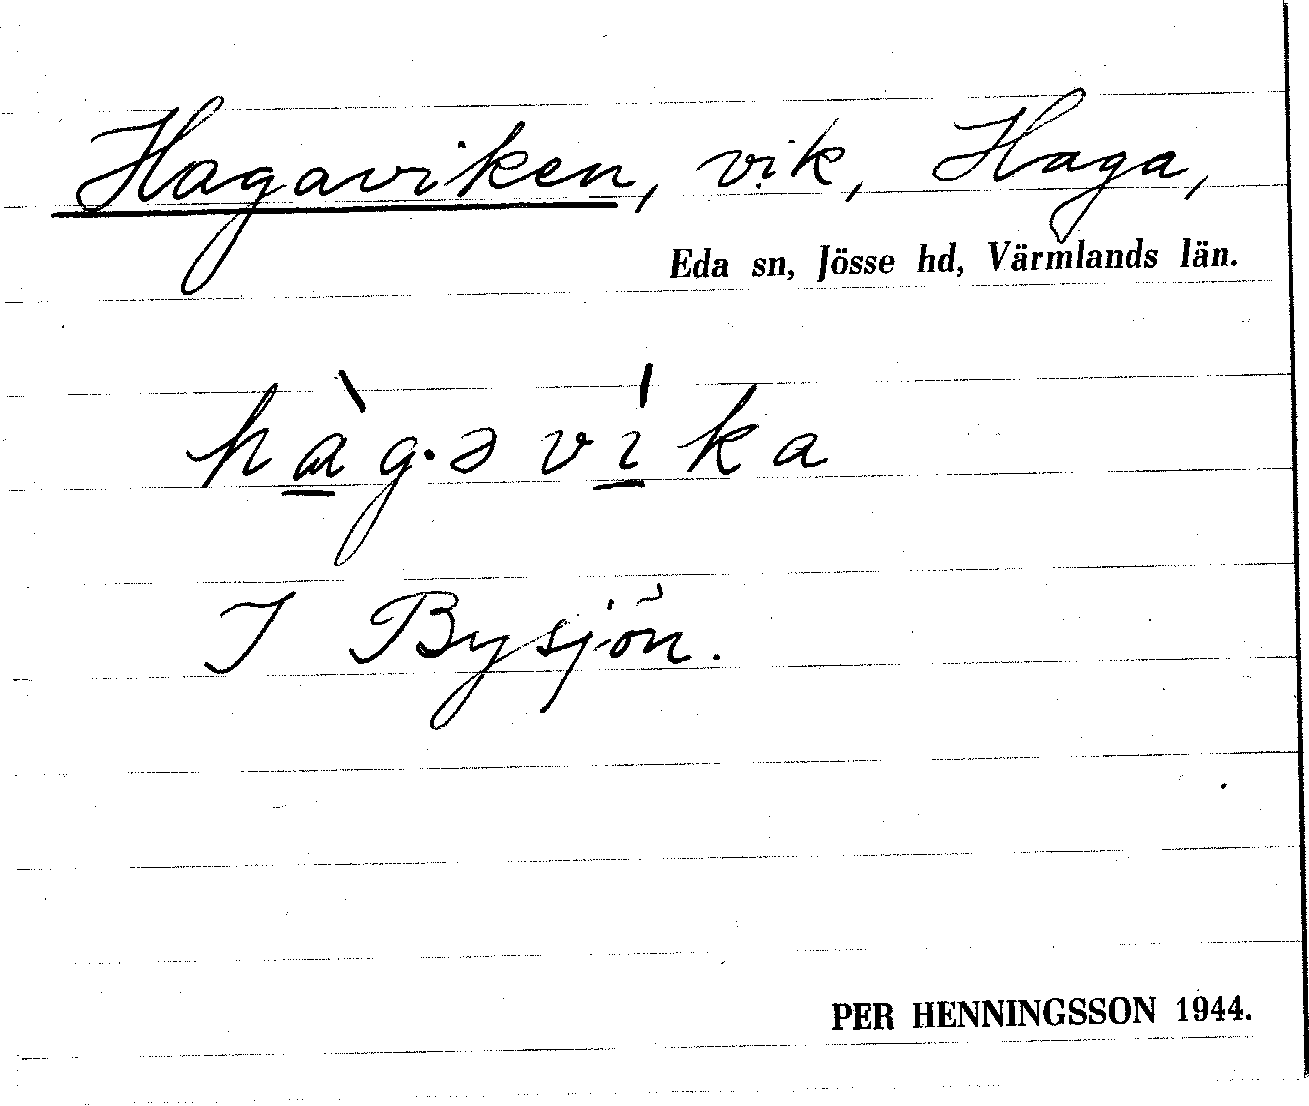 Hagaviken, vik, Haga,
Eda sn, Jösse hd, Värmlands län.
hàg.əvíka
I Bysjön.
PER HENNINGSSON 1944.